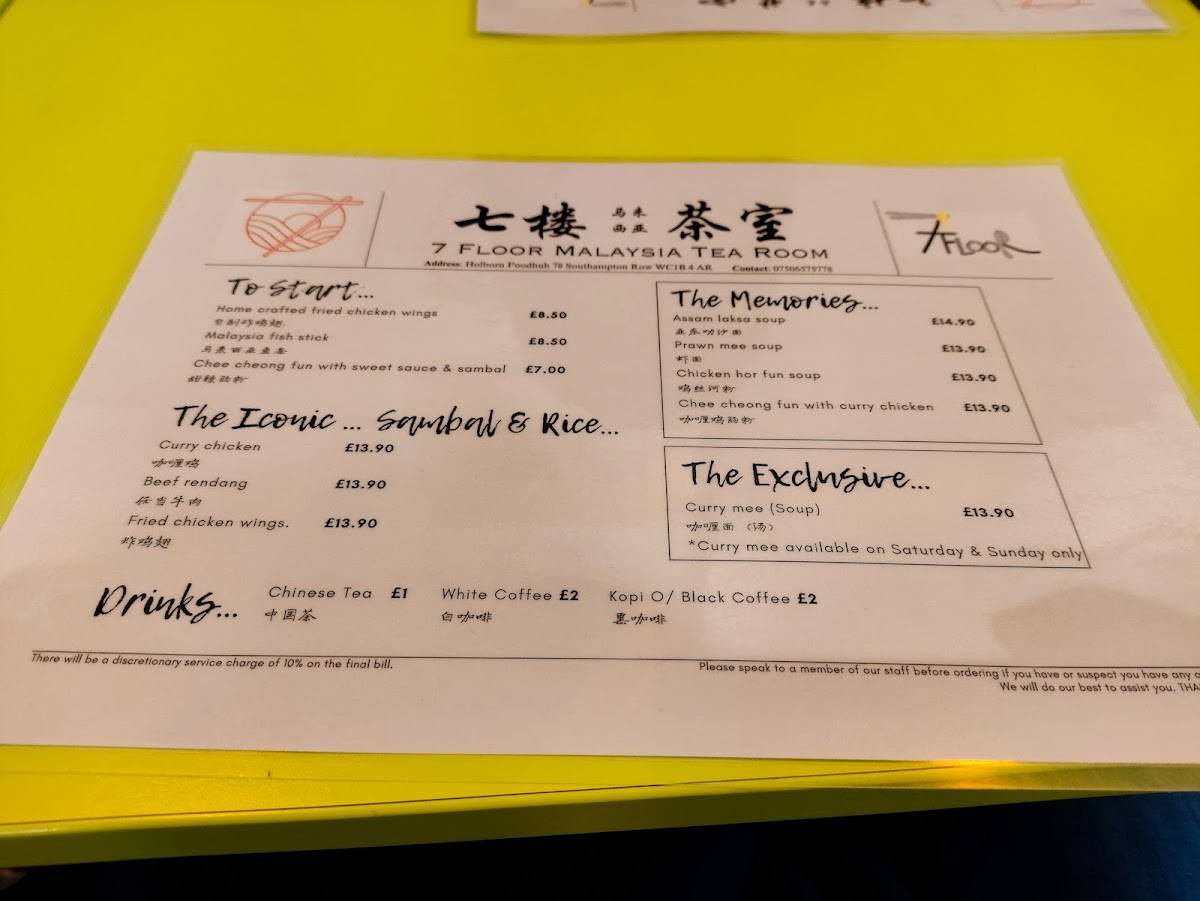 七楼 马来西亚 茶室
7 FLOOR MALAYSIA TEA ROOM
Address: Holborn Foodhub 78 Southampton Row WC1B 4 AR Contact: 07506575778
7 FLOOR
To Start...
Home crafted fried chicken wings £8.50
自制炸鸡翅
Malaysia fish stick £8.50
马来西亚鱼条
Chee cheong fun with sweet sauce & sambal £7.00
甜辣肠粉
The Iconic ... Sambal & Rice...
Curry chicken £13.90
咖喱鸡
Beef rendang £13.90
任当牛肉
Fried chicken wings. £13.90
炸鸡翅
The Memories...
Assam laksa soup £14.90
亚参叻沙面
Prawn mee soup £13.90
虾面
Chicken hor fun soup £13.90
鸡丝河粉
Chee cheong fun with curry chicken £13.90
咖喱鸡肠粉
The Exclusive...
Curry mee (Soup) £13.90
咖喱面 (汤)
*Curry mee available on Saturday & Sunday only
Drinks...
Chinese Tea £1 White Coffee £2 Kopi O/ Black Coffee £2
中国茶 白咖啡 黑咖啡
There will be a discretionary service charge of 10% on the final bill.
Please speak to a member of our staff before ordering if you have or suspect you have any
We will do our best to assist you.